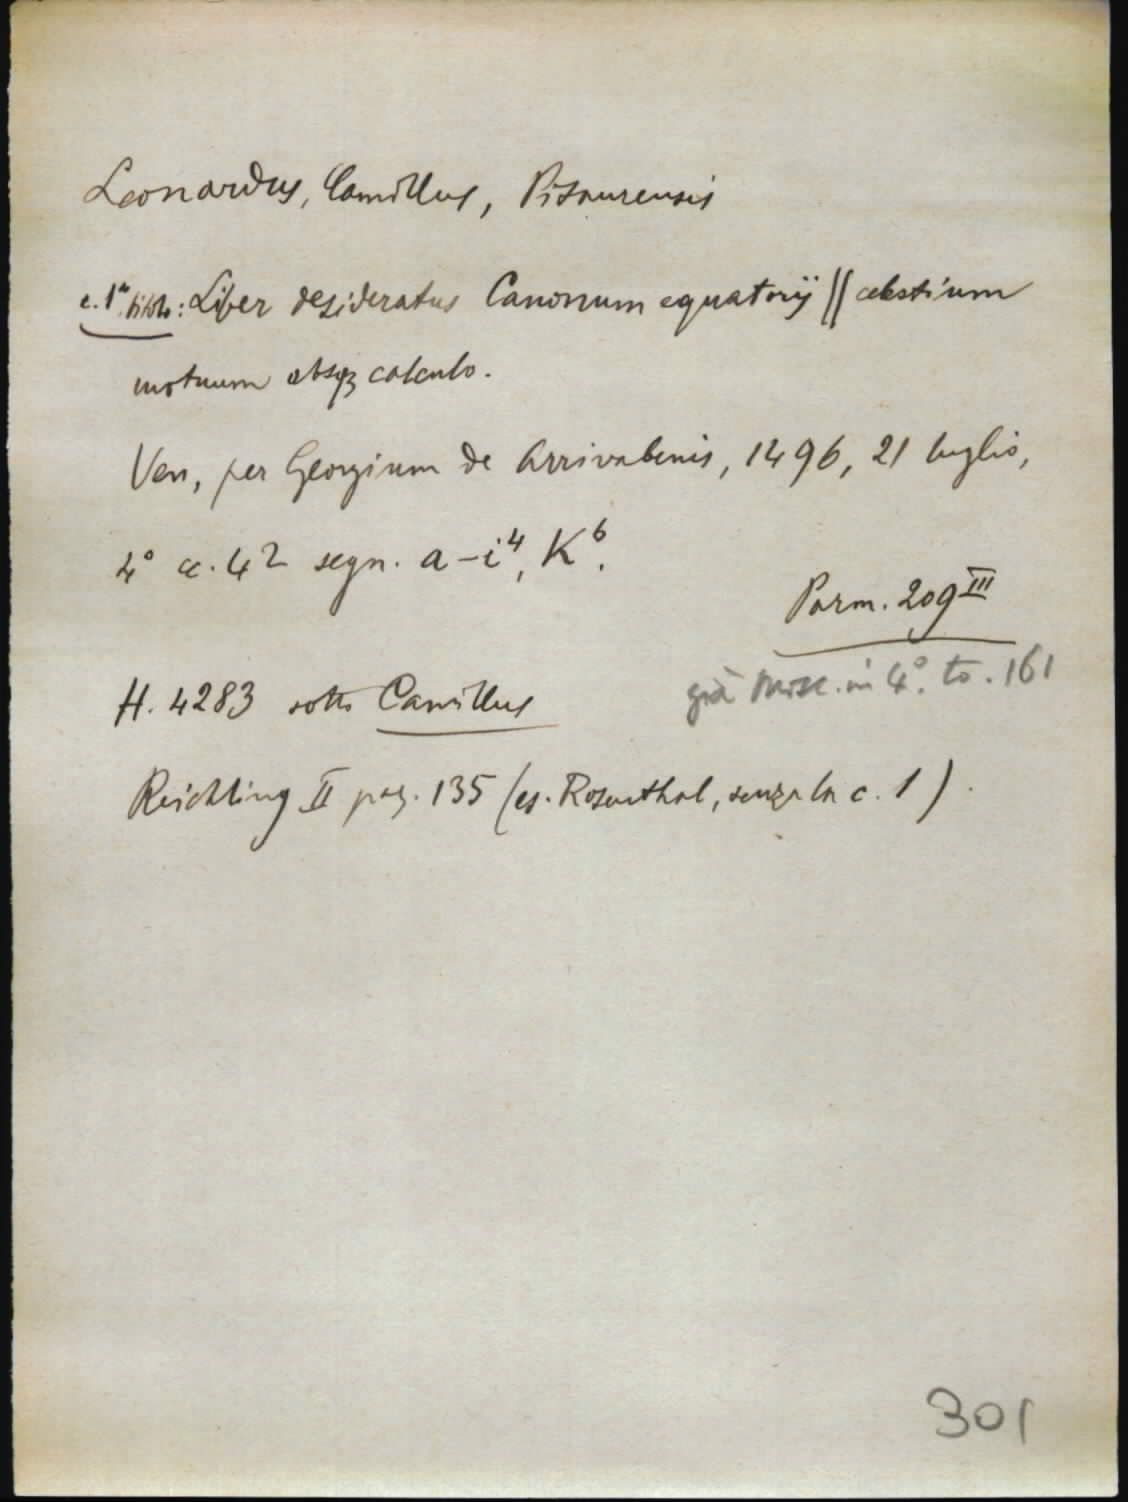 Leonardus, Camillus, Pisaurensis
c. 1ª titolo: Liber desideratus Canonum equatorij || celestium
motuum absqꝫ calculo.
Ven, per Georgium de Arrivabenis, 1496, 21 luglio,
4° cc. 42 segn. a-i⁴, K⁶.
Parm. 209 III
già Misc. in 4°. to. 161
H. 4283 sotto Camillus
Reichling II pag. 135 (es. Rosenthal, senza la c. 1).
301